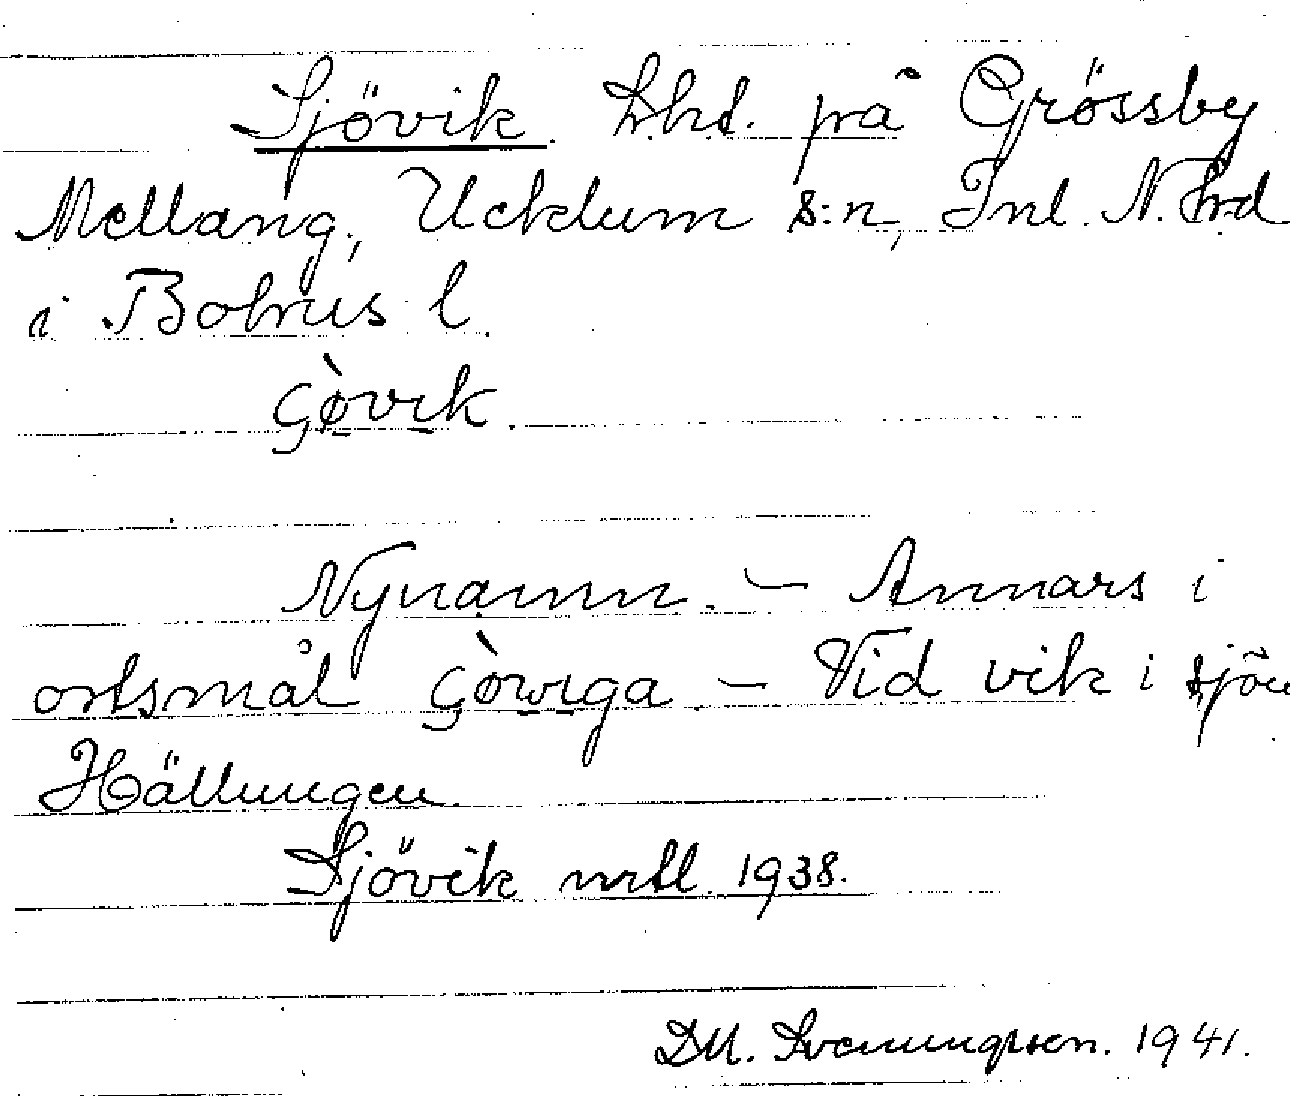 Sjövik. Lht. på Grössby
Mellang., Ucklum s:n, Inl. N. hrd
i Bohus l.
çòvik.
Nynamn. – Annars i
ortsmål çòwiga – Vid vik i sjön
Hällungen.
Sjövik mtl. 1938.
DM. Svenungsson. 1941.